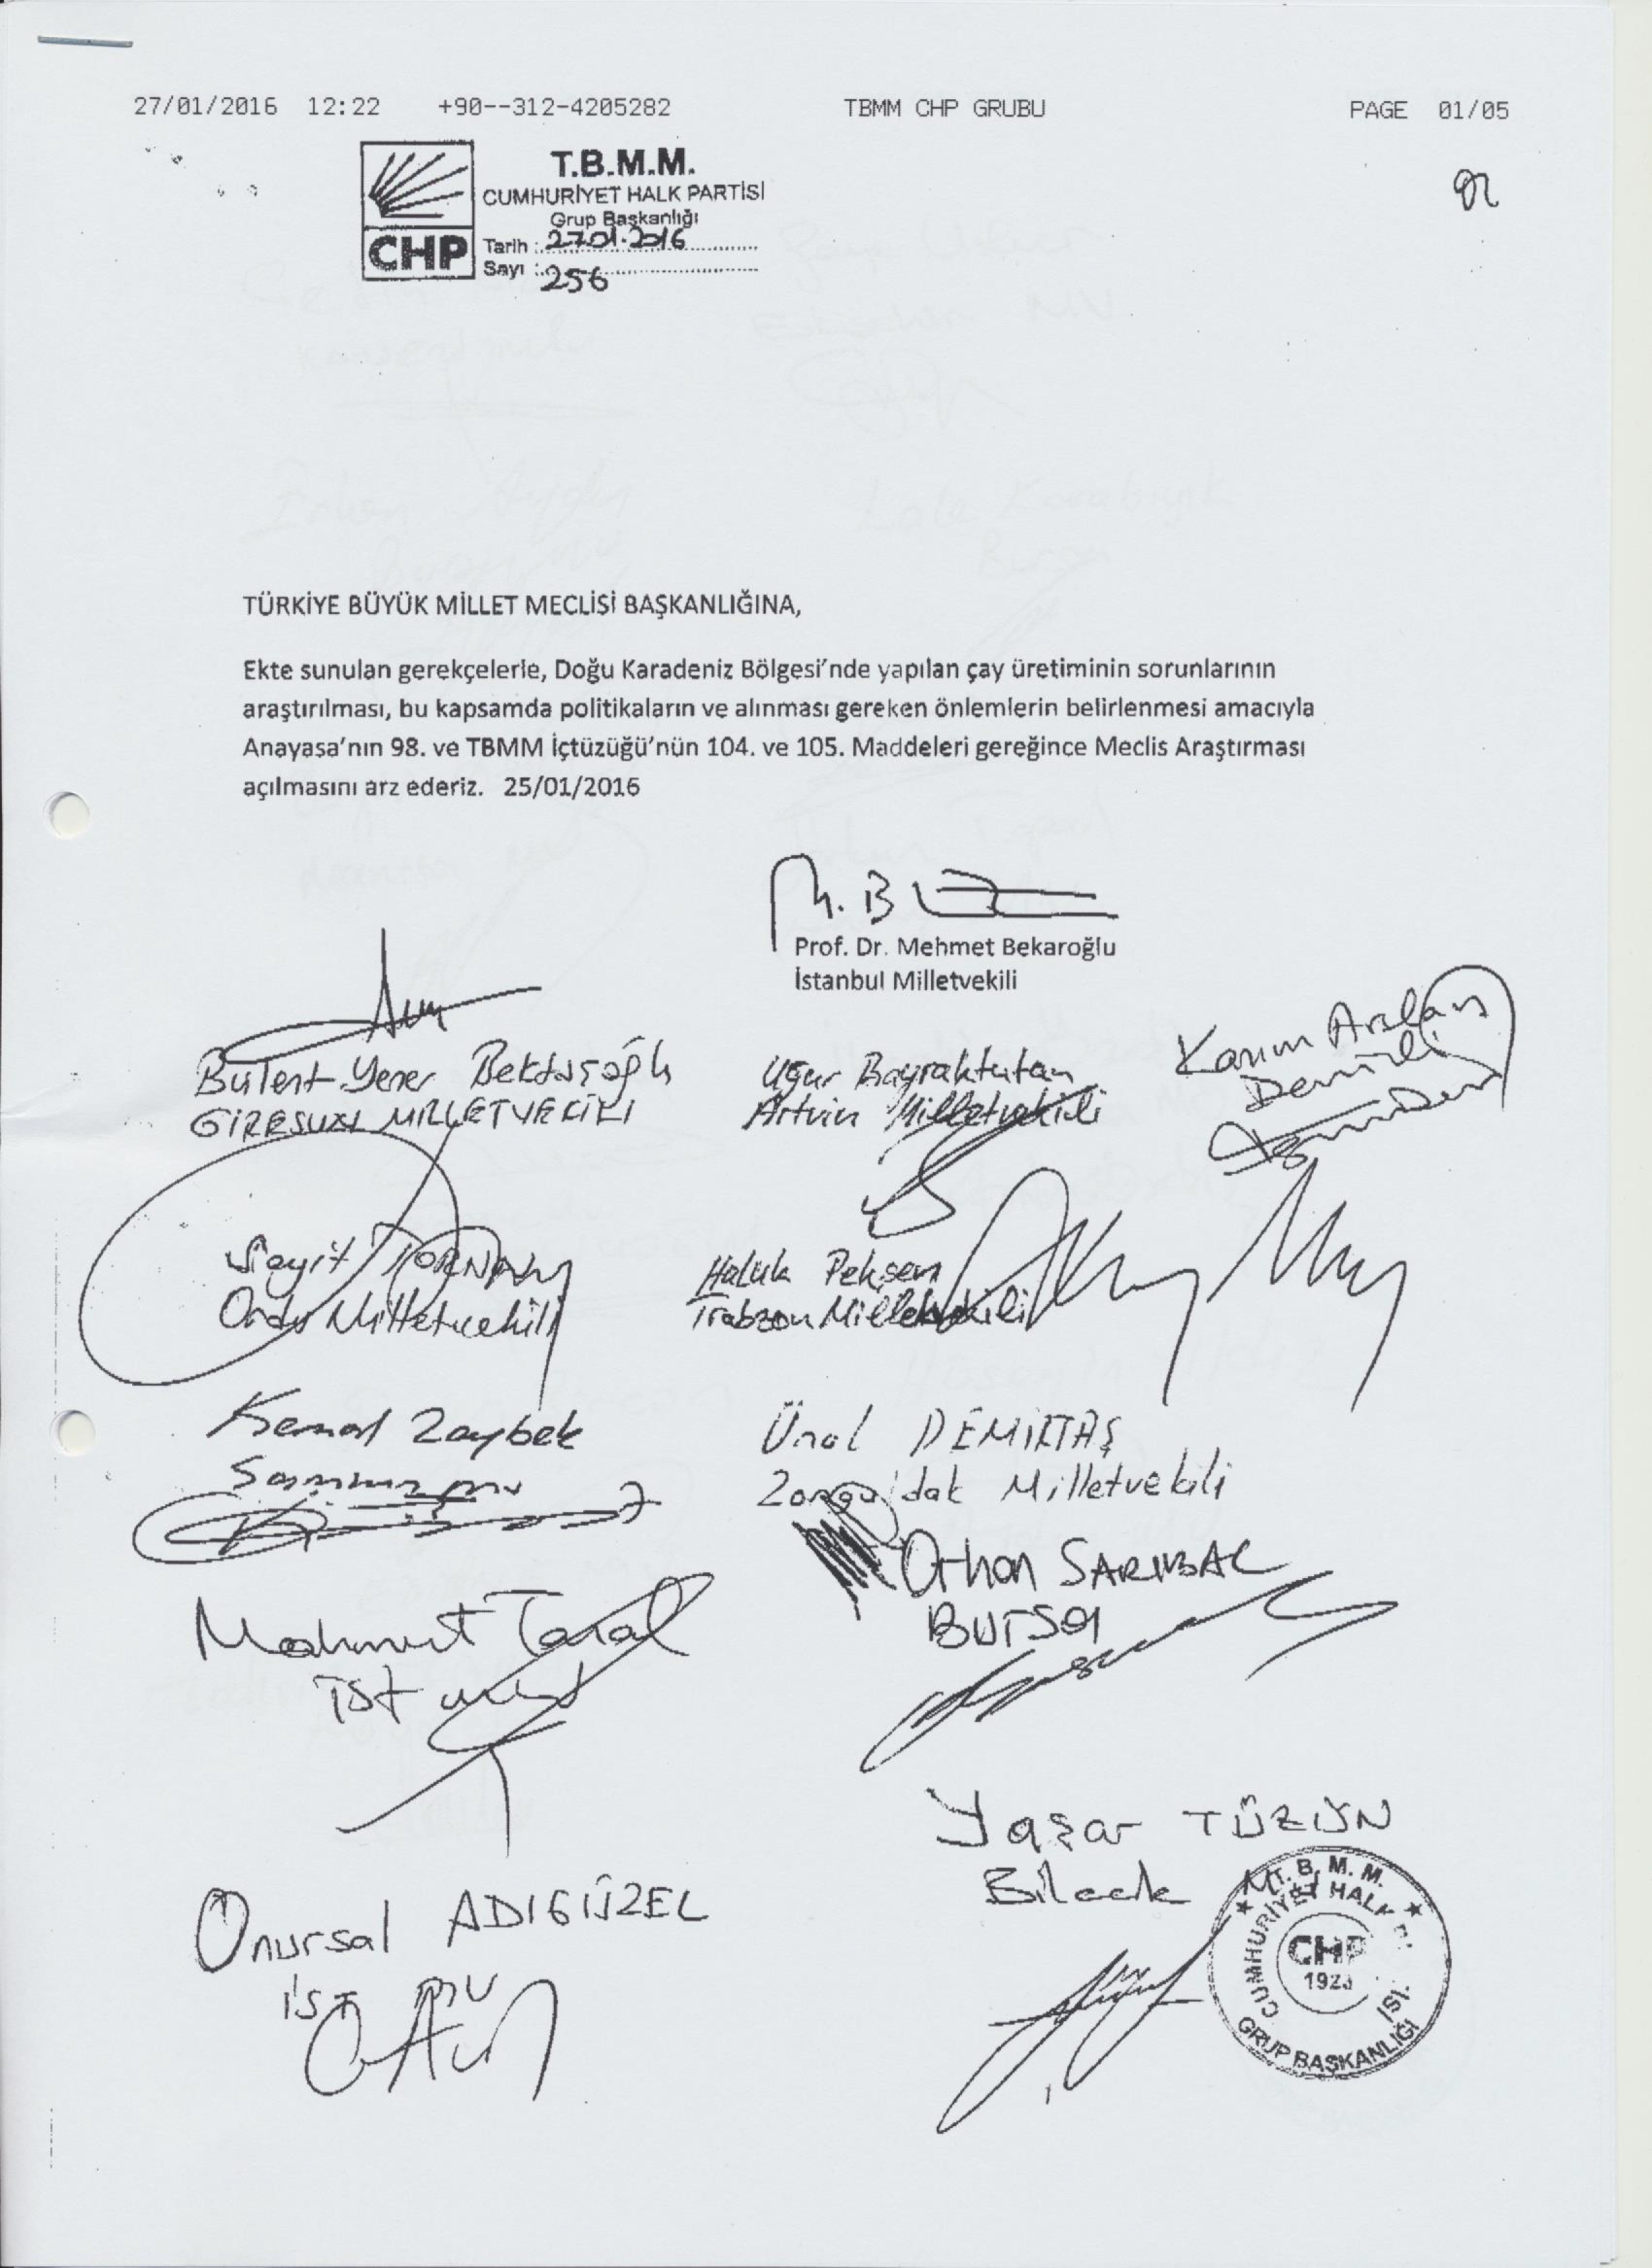 27/01/2016 12:22 +90--312-4205282 TBMM CHP GRUBU PAGE 01/05
T.B.M.M.
CUMHURİYET HALK PARTİSİ
Grup Başkanlığı
CHP
Tarih : 27.01.2016
Sayı : 256
TÜRKİYE BÜYÜK MİLLET MECLİSİ BAŞKANLIĞINA,
Ekte sunulan gerekçelerle, Doğu Karadeniz Bölgesi'nde yapılan çay üretiminin sorunlarının
araştırılması, bu kapsamda politikaların ve alınması gereken önlemlerin belirlenmesi amacıyla
Anayasa'nın 98. ve TBMM İçtüzüğü'nün 104. ve 105. Maddeleri gereğince Meclis Araştırması
açılmasını arz ederiz. 25/01/2016
M. B
Prof. Dr. Mehmet Bekaroğlu
İstanbul Milletvekili
Bülent Yener Bektaşoğlu
GİRESUN MİLLETVEKİLİ
Uğur Bayraktutan
Artvin Milletvekili
Kazım Arslan
Denizli
Seyit TORUN
Ordu Milletvekili
Haluk Pekşen
Trabzon Milletvekili
Kemal Zeybek
Samsun mv
Ünal DEMİRTAŞ
Zonguldak Milletvekili
Orhan SARIBAL
BURSA
Mahmut Tanal
İst
Yaşar TÜZÜN
Bilecik M
Onursal ADIGÜZEL
İST MV
T.B.M.M.
CUMHURİYET HALK
CHP
GRUP BAŞKANLIĞI